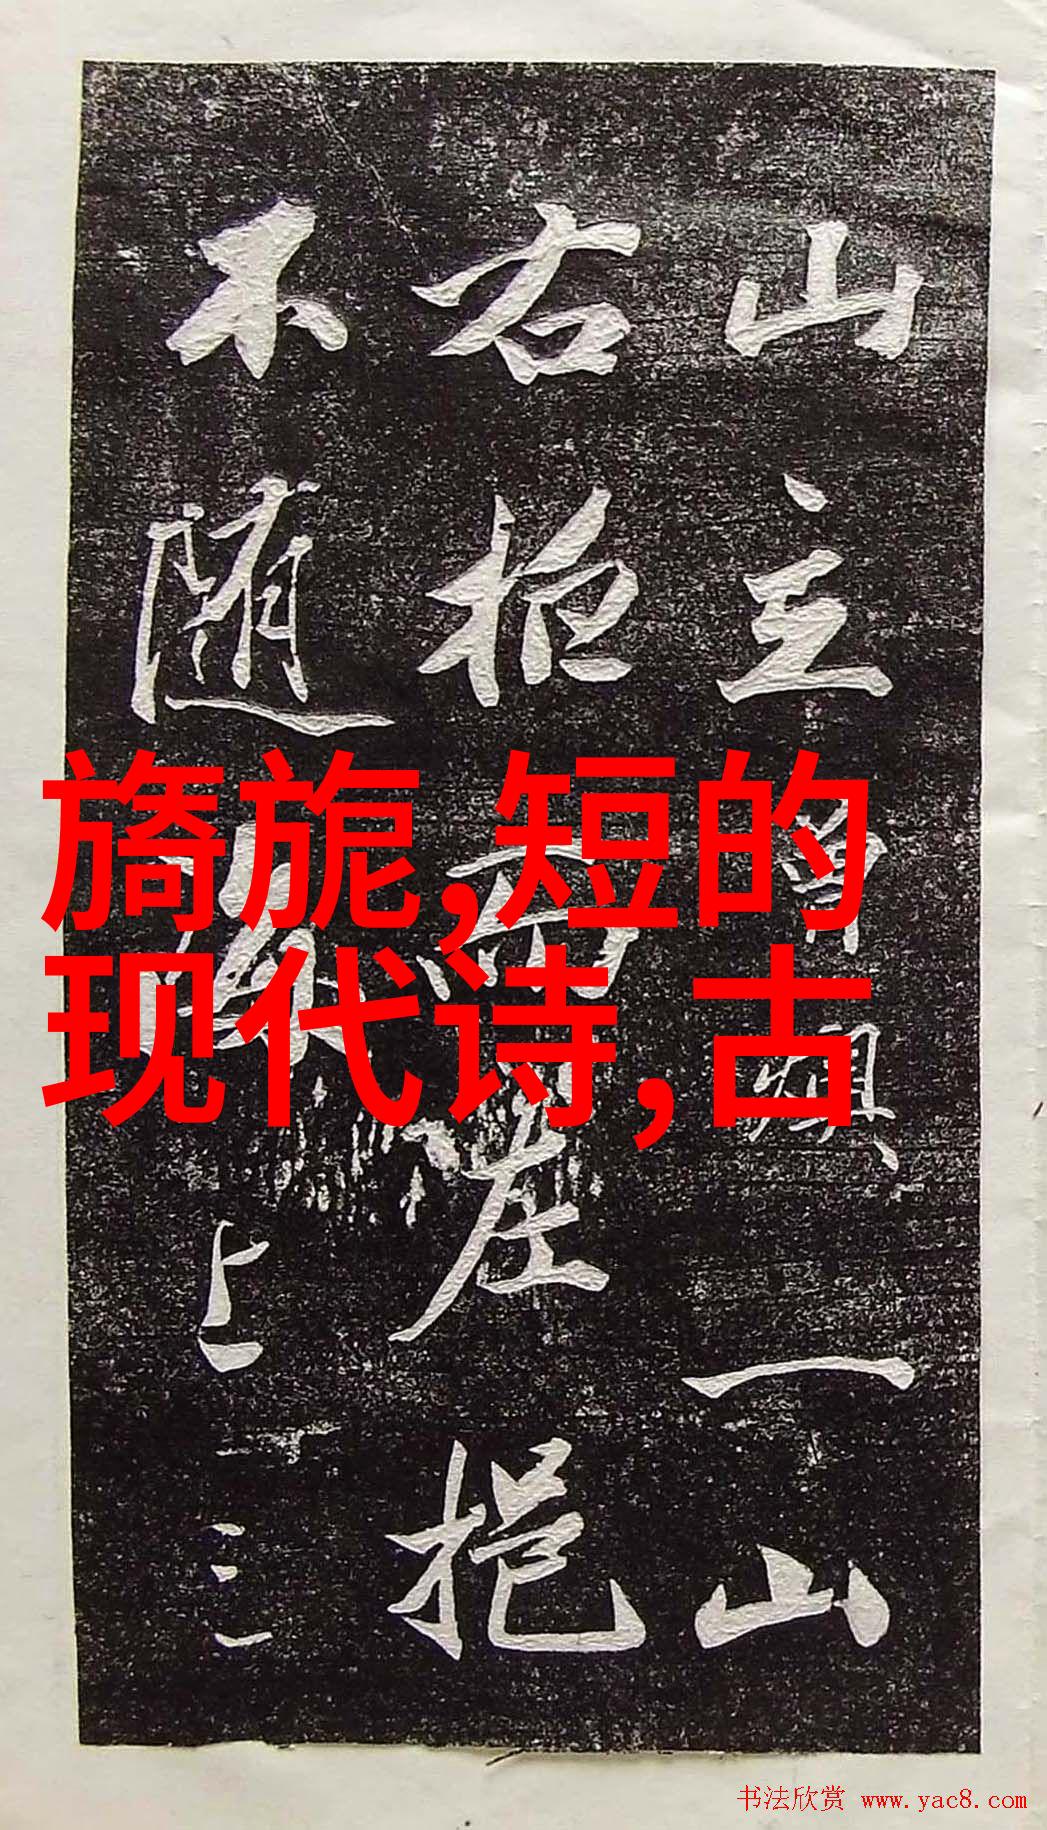 山主曾一山
右而左挹
不随上三
旖旎,短的
现代诗,古
书法欣赏 www.yac8.com